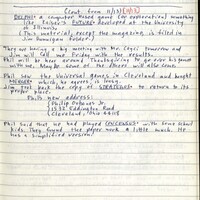 (Cont from 11/23 [11/23])
DELPHI: a computer based game (or exploration) something
like Zeise's ... developed at the University of
Illinois.
(This material, except the magazine, is filed in
Jim Dunnigan folder)
They are having a big meeting with Mr. ... tomorrow and
Jim will call me Friday with the results.
Phil will be here around Thanksgiving to go over his games
with me. Maybe some of the others will also come.
Phil saw the Universal games in Cleveland and bought
MERGER which, he agrees, is lousy.
Jim took back the copy of STRATEGO to return to its
proper place.
Phil's new address:
Philip Orbanes Jr.
1532 Eddington Road
Cleveland, Ohio 44118
Phil said that he had played ... with some school
kids. They found the paper work a little much. He
has a simplified version.